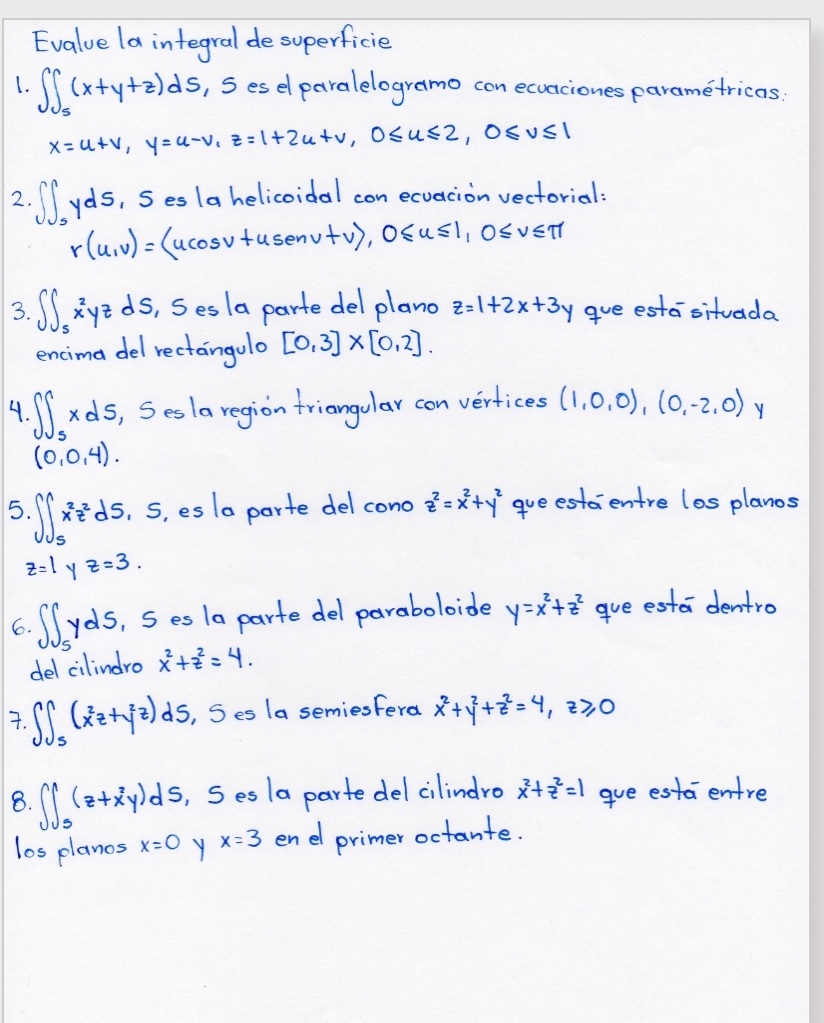 Evalue la integral de superficie
1. ∬ₛ (x+y+z)dS, S es el paralelogramo con ecuaciones paramétricas:
x=u+v, y=u-v, z=1+2u+v, 0≤u≤2, 0≤v≤1
2. ∬ₛ yds, S es la helicoidal con ecuación vectorial:
r(u,v) = ⟨ucosv+usenv+v⟩, 0≤u≤1, 0≤v≤π
3. ∬ₛ x²yz dS, S es la parte del plano z=1+2x+3y que está situada
encima del rectángulo [0,3]×[0,2].
4. ∬ₛ xds, S es la región triangular con vértices (1,0,0), (0,-2,0) y
(0,0,4).
5. ∬ₛ x²z²dS, S, es la parte del cono z²=x²+y² que está entre los planos
z=1 y z=3.
6. ∬ₛ yds, S es la parte del paraboloide y=x²+z² que está dentro
del cilindro x²+z²=4.
7. ∬ₛ (x²z+y²z)dS, S es la semiesfera x²+y²+z²=4, z≥0
8. ∬ₛ (z+x²y)dS, S es la parte del cilindro x²+z²=1 que está entre
los planos x=0 y x=3 en el primer octante.